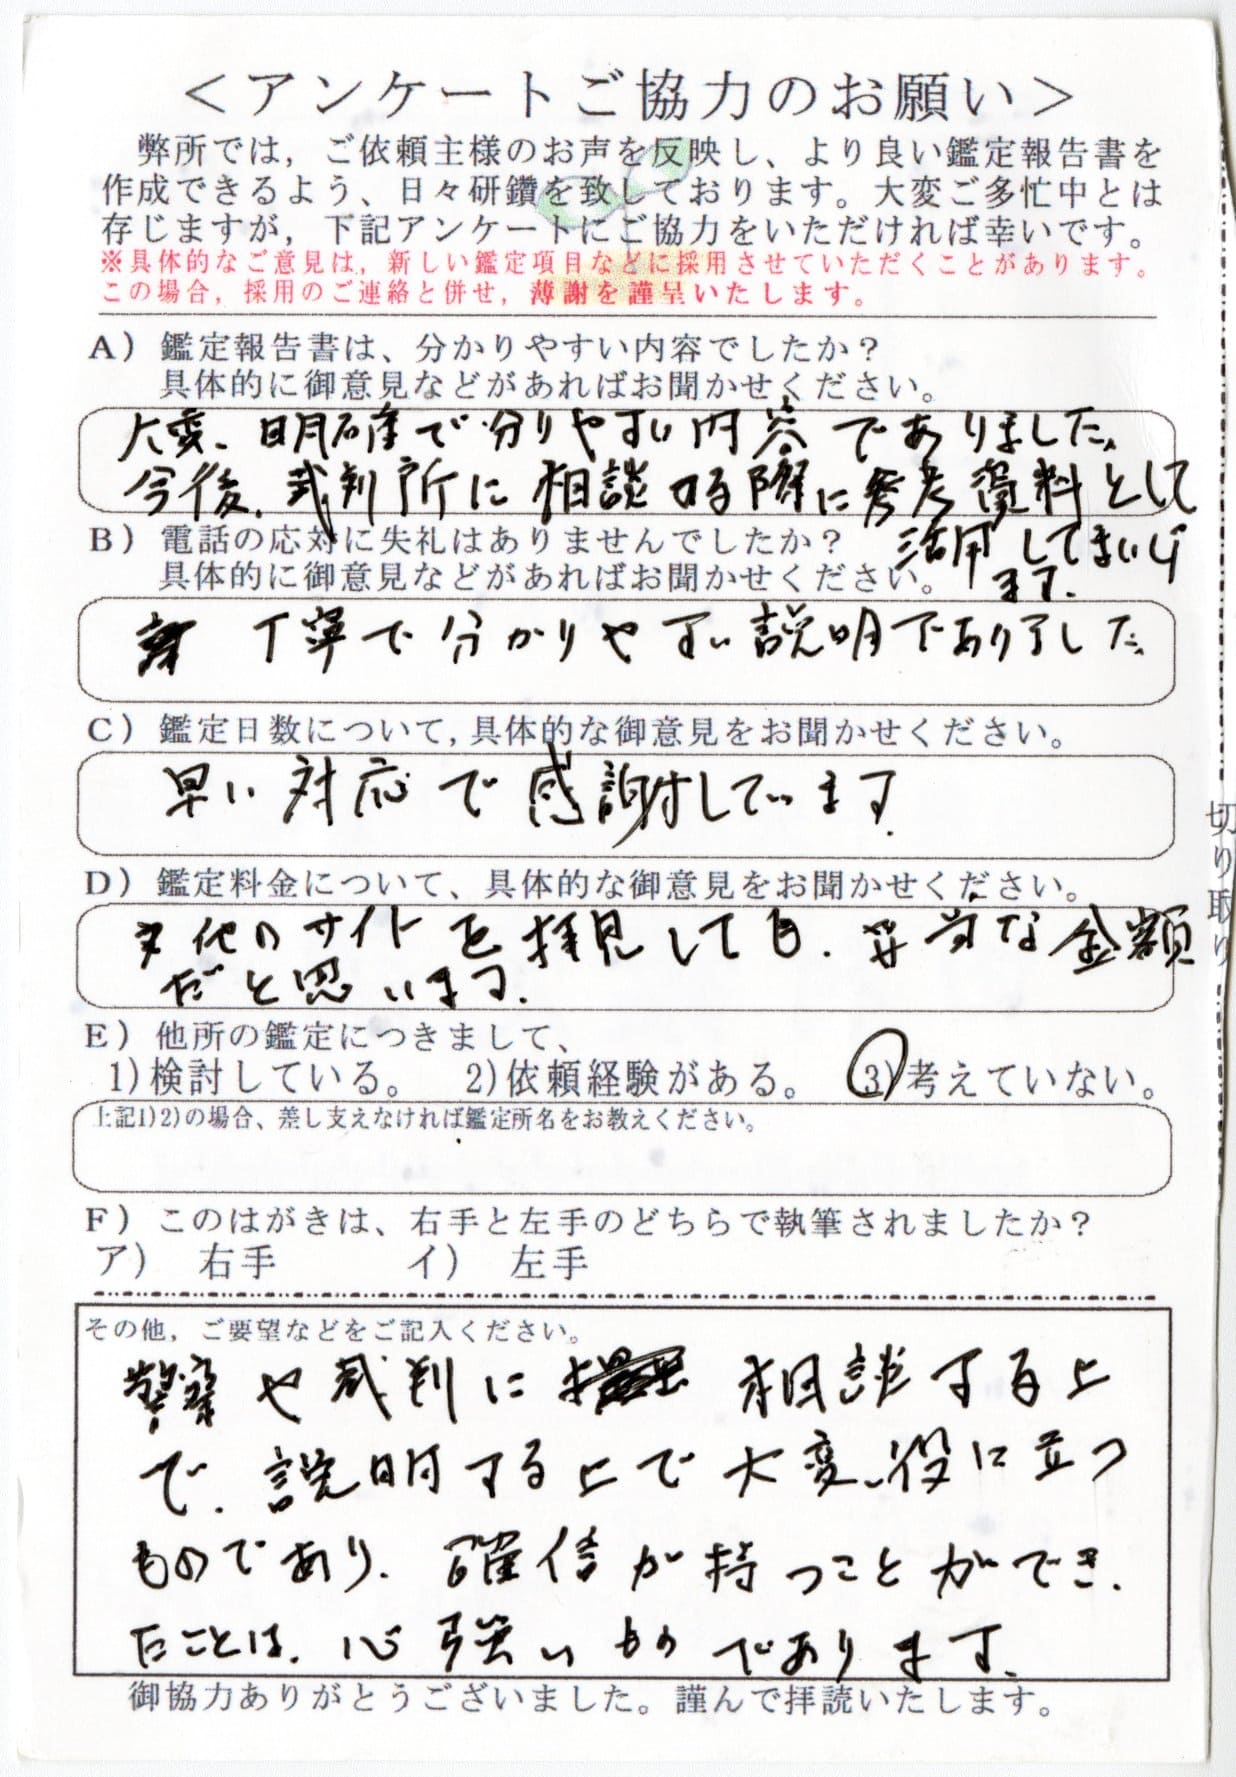 ＜アンケートご協力のお願い＞
弊所では，ご依頼主様のお声を反映し、より良い鑑定報告書を
作成できるよう、日々研鑽を致しております。大変ご多忙中とは
存じますが，下記アンケートにご協力をいただければ幸いです。
※具体的なご意見は，新しい鑑定項目などに採用させていただくことがあります。
この場合，採用のご連絡と併せ，薄謝を謹呈いたします。
A）鑑定報告書は、分かりやすい内容でしたか？
具体的に御意見などがあればお聞かせください。
大変、明確で分りやすい内容でありました。
今後、裁判所に相談する際に参考資料として
活用してまいり
ます。
B）電話の応対に失礼はありませんでしたか？
具体的に御意見などがあればお聞かせください。
丁寧で分かりやすい説明でありました。
C）鑑定日数について,具体的な御意見をお聞かせください。
早い対応で感謝しています。
D）鑑定料金について、具体的な御意見をお聞かせください。
他のサイトを拝見しても、妥当な金額
だと思います。
E）他所の鑑定につきまして、
1)検討している。　2)依頼経験がある。　3)考えていない。
上記1)2)の場合、差し支えなければ鑑定所名をお教えください。
F）このはがきは、右手と左手のどちらで執筆されましたか？
ア）　右手　　　イ）　左手
その他，ご要望などをご記入ください。
警察や裁判に 相談する上
で、説明する上で大変、役に立つ
ものであり、確信が持つことができ、
たことは、心強いものであります。
御協力ありがとうございました。謹んで拝読いたします。
切り取り